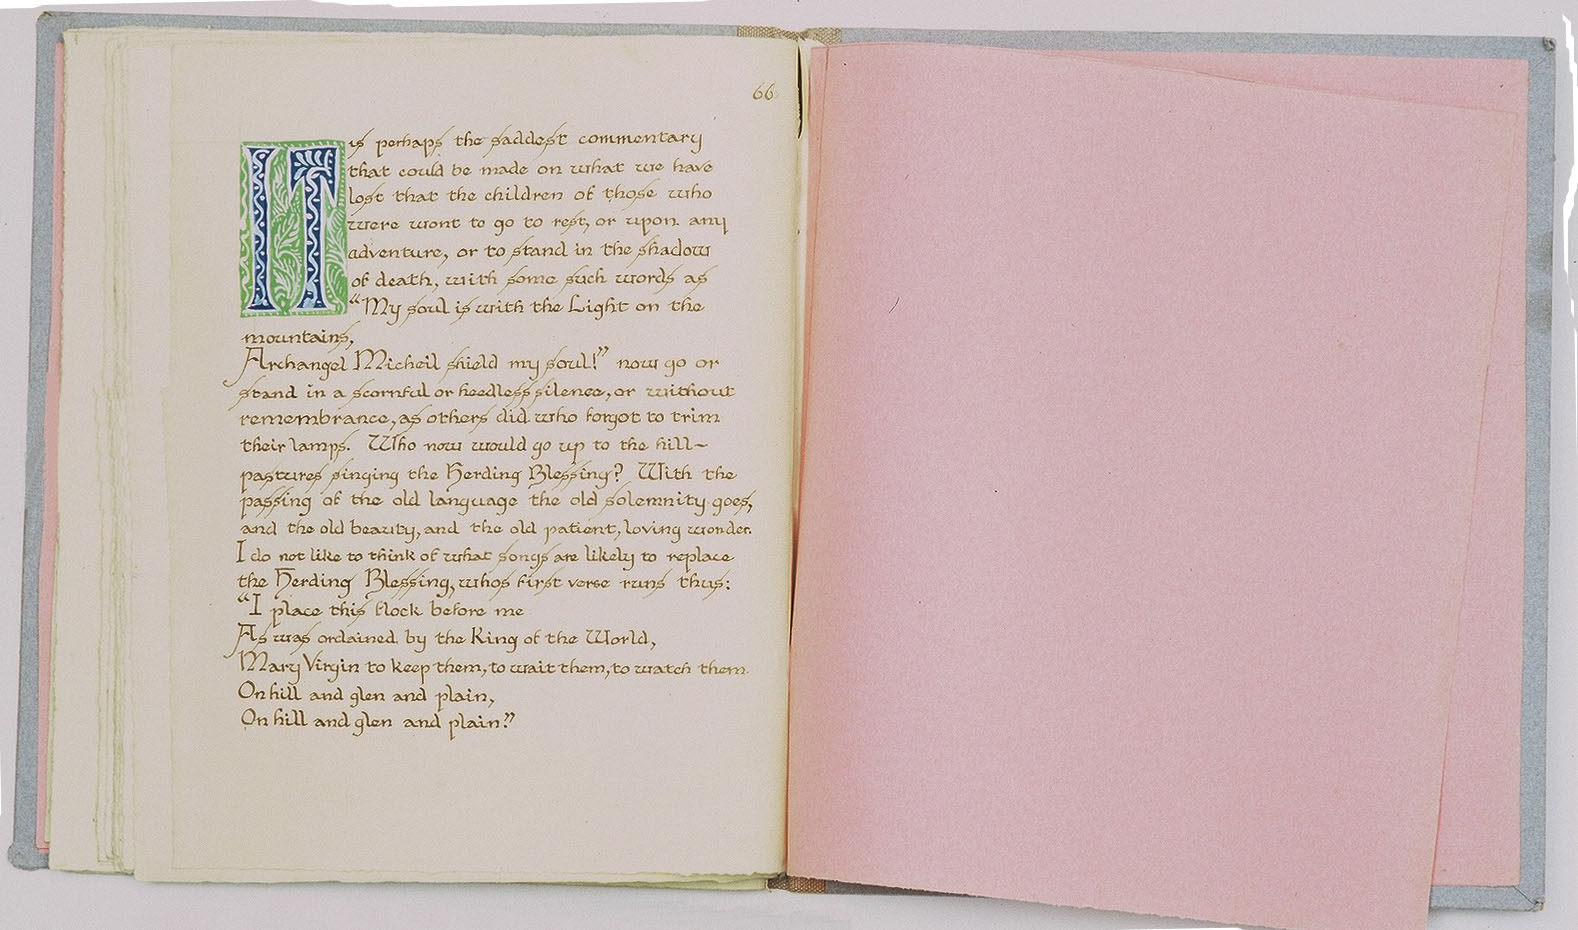 66
IT is perhaps the saddest commentary
that could be made on what we have
lost that the children of those who
were wont to go to rest, or upon any
adventure, or to stand in the shadow
of death, with some such words as
“My soul is with the Light on the
mountains,
Archangel Micheil shield my soul!” now go or
stand in a scornful or heedless silence, or without
remembrance, as others did who forgot to trim
their lamps. Who now would go up to the hill-
pastures singing the Herding Blessing? With the
passing of the old language the old solemnity goes,
and the old beauty, and the old patient, loving wonder.
I do not like to think of what songs are likely to replace
the Herding Blessing, whos first verse runs thus:
“I place this flock before me
As was ordained by the King of the World,
Mary Virgin to keep them, to wait them, to watch them.
On hill and glen and plain,
On hill and glen and plain.”